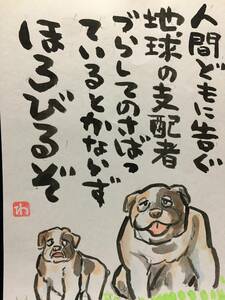 人間どもに告ぐ
地球の支配者
づらしてのさばっ
ているとかならず
ほろびるぞ